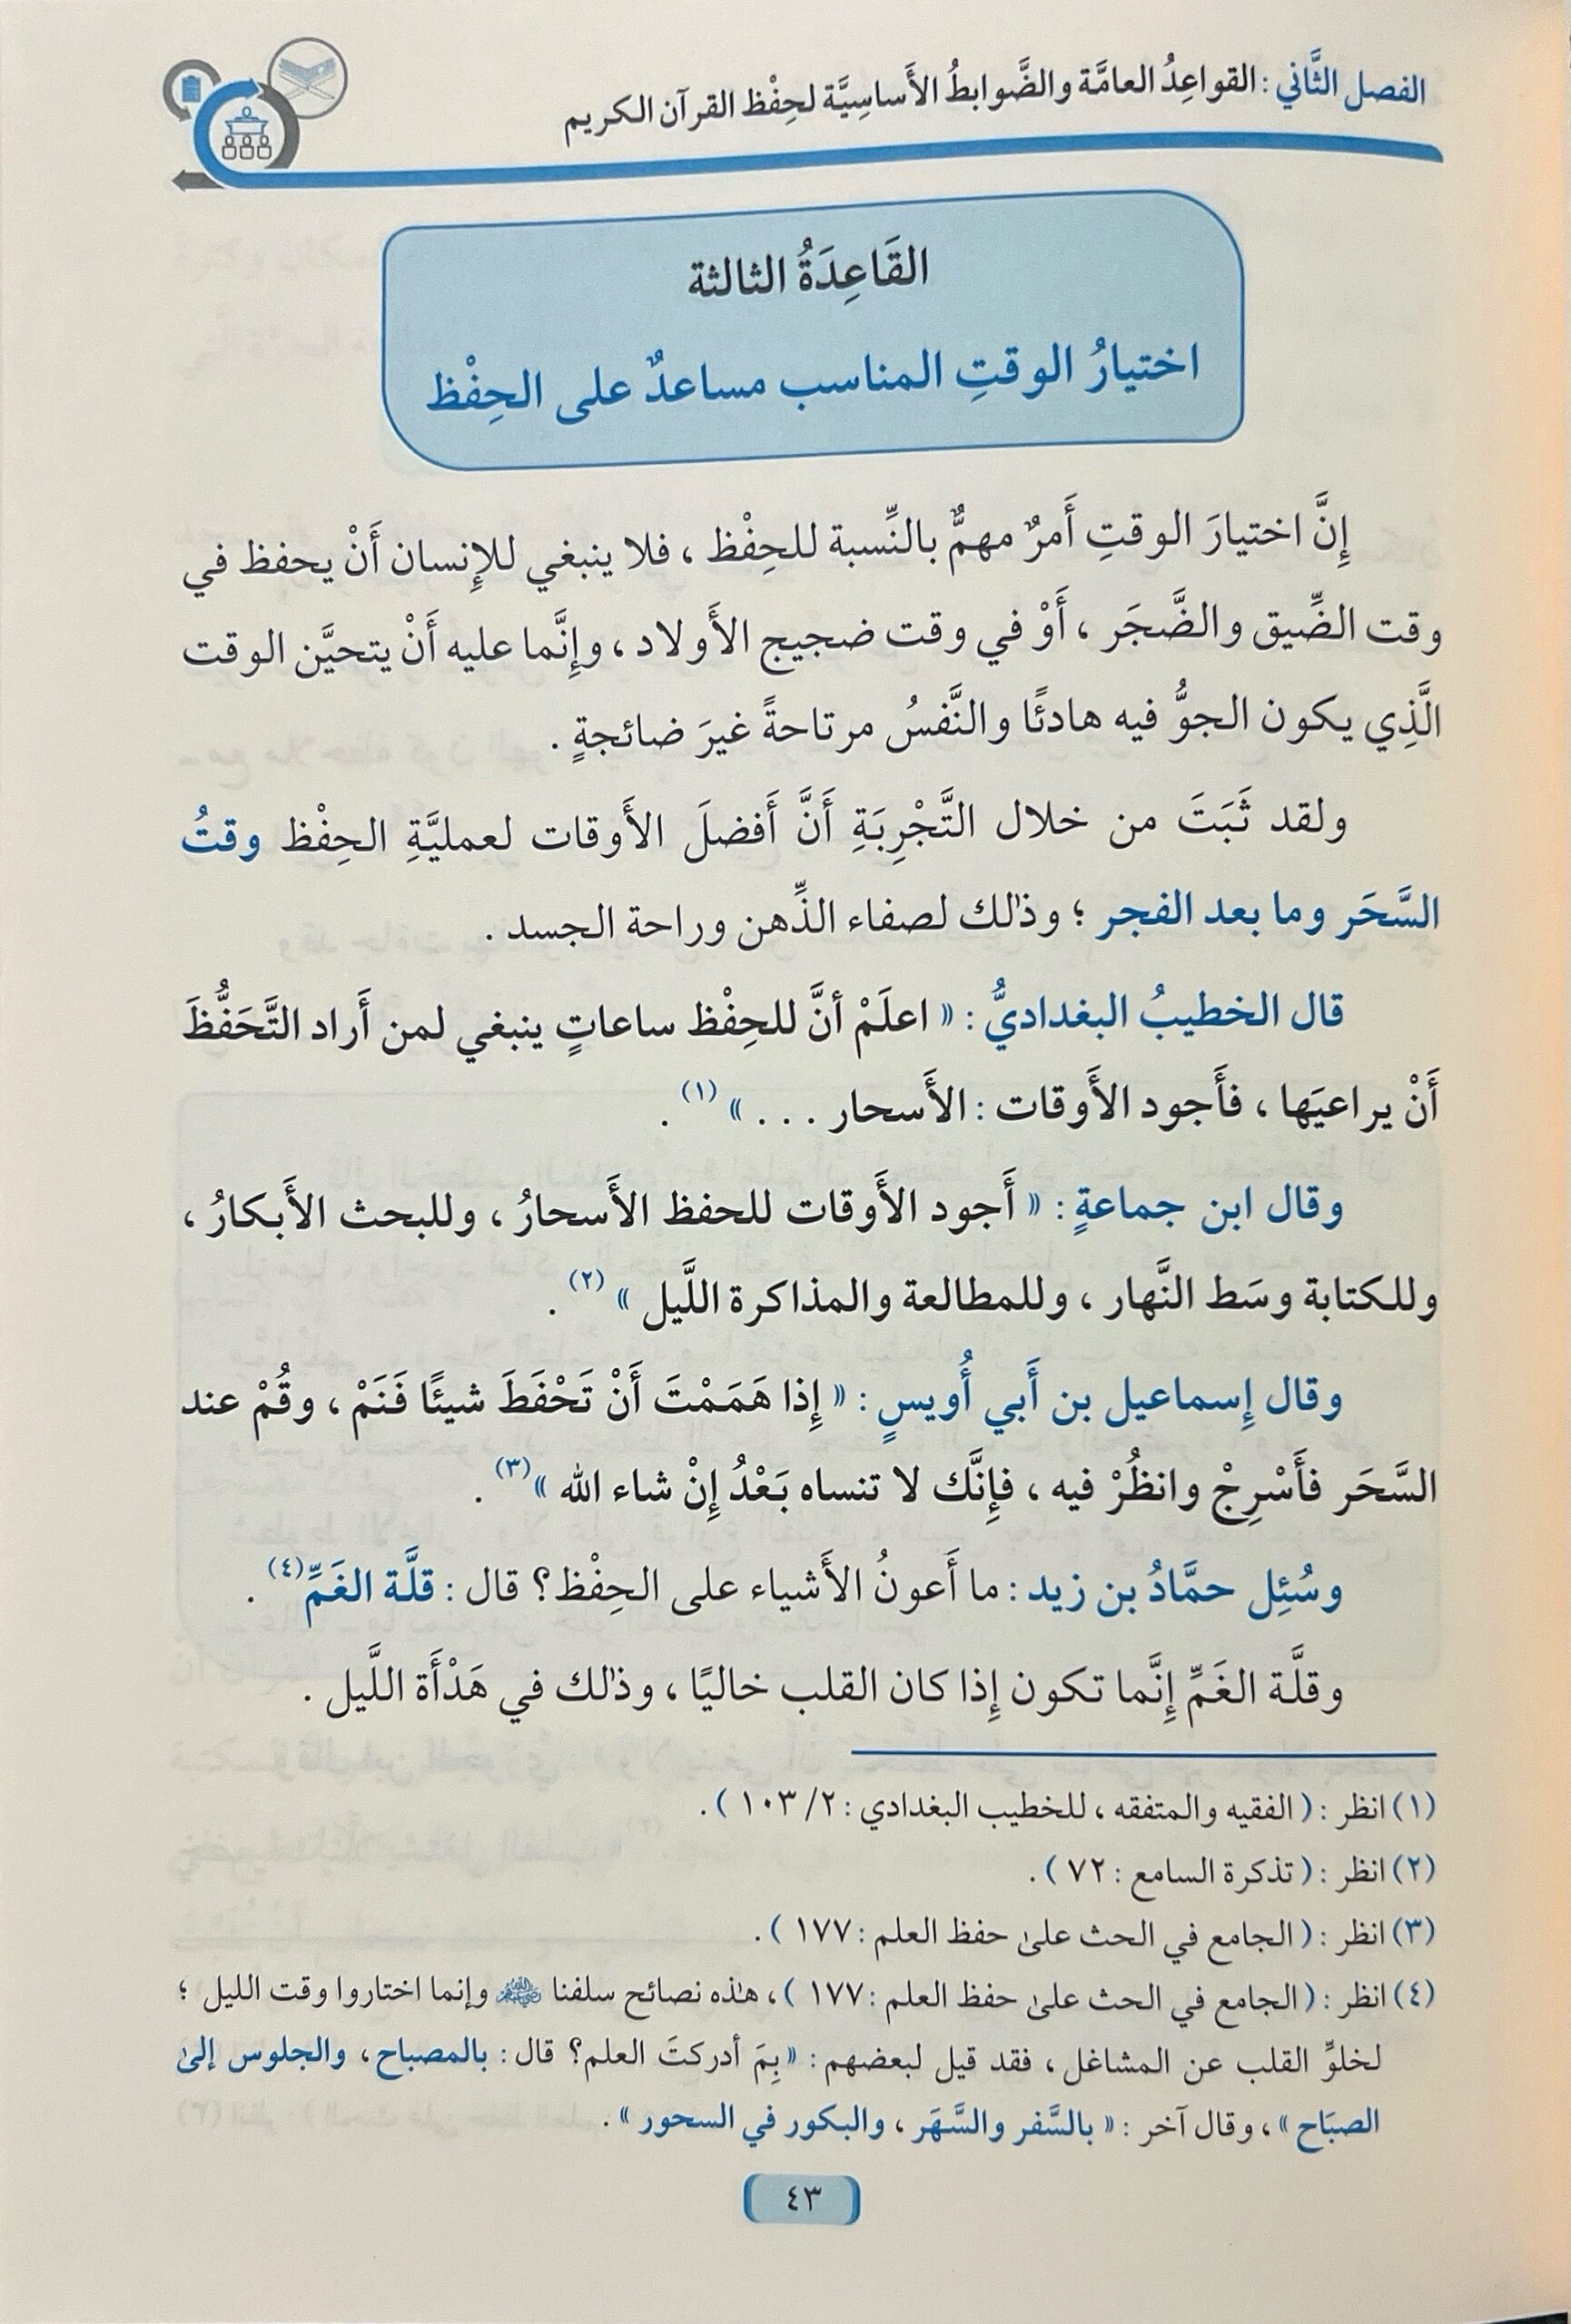 الفصل الثَّاني : القواعِدُ العامَّة والضَّوابطُ الأَساسِيَّة لحِفْظ القرآن الكريم
القَاعِدَةُ الثالثة
اختيارُ الوقتِ المناسب مساعدٌ على الحِفْظ
إِنَّ اختيارَ الوقتِ أَمرٌ مهمٌّ بالنِّسبة للحِفْظ ، فلا ينبغي للإِنسان أَنْ يحفظ في
وقت الضِّيق والضَّجَر ، أَوْ في وقت ضجيج الأَولاد ، وإِنَّما عليه أَنْ يتحيَّن الوقت
الَّذِي يكون الجوُّ فيه هادئًا والنَّفسُ مرتاحةً غيرَ ضائجةٍ .
ولقد ثَبَتَ من خلال التَّجْرِبَةِ أَنَّ أَفضلَ الأَوقات لعمليَّةِ الحِفْظ وقتُ
السَّحَر وما بعد الفجر ؛ وذٰلك لصفاء الذِّهن وراحة الجسد .
قال الخطيبُ البغداديُّ : « اعلَمْ أنَّ للحِفْظ ساعاتٍ ينبغي لمن أَراد التَّحَفُّظَ
أَنْ يراعيَها ، فأَجود الأَوقات : الأَسحار . . . » (١) .
وقال ابن جماعةٍ : « أَجود الأَوقات للحفظ الأَسحارُ ، وللبحث الأَبكارُ ،
وللكتابة وسَط النَّهار ، وللمطالعة والمذاكرة اللَّيل » (٢) .
وقال إِسماعيل بن أَبي أُويسٍ : « إِذا هَمَمْتَ أَنْ تَحْفَظَ شيئًا فَنَمْ ، وقُمْ عند
السَّحَر فأَسْرِجْ وانظُرْ فيه ، فإِنَّك لا تنساه بَعْدُ إِنْ شاء الله » (٣) .
وسُئِل حمَّادُ بن زيد : ما أَعونُ الأَشياء على الحِفْظ؟ قال : قلَّة الغَمِّ (٤) .
وقلَّة الغَمِّ إِنَّما تكون إِذا كان القلب خاليًا ، وذٰلك في هَدْأَة اللَّيل .
(١) انظر : ( الفقيه والمتفقه ، للخطيب البغدادي : ٢/ ١٠٣ ) .
(٢) انظر : ( تذكرة السامع : ٧٢ ) .
(٣) انظر : ( الجامع في الحث علىٰ حفظ العلم : ١٧٧ ) .
(٤) انظر : ( الجامع في الحث علىٰ حفظ العلم : ١٧٧ ) ، هٰذه نصائح سلفنا وإنما اختاروا وقت الليل ؛
لخلوِّ القلب عن المشاغل ، فقد قيل لبعضهم : « بِمَ أدركتَ العلم؟ قال : بالمصباح ، والجلوس إلىٰ
الصبَاح » ، وقال آخر : « بالسَّفر والسَّهَر ، والبكور في السحور » .
٤٣